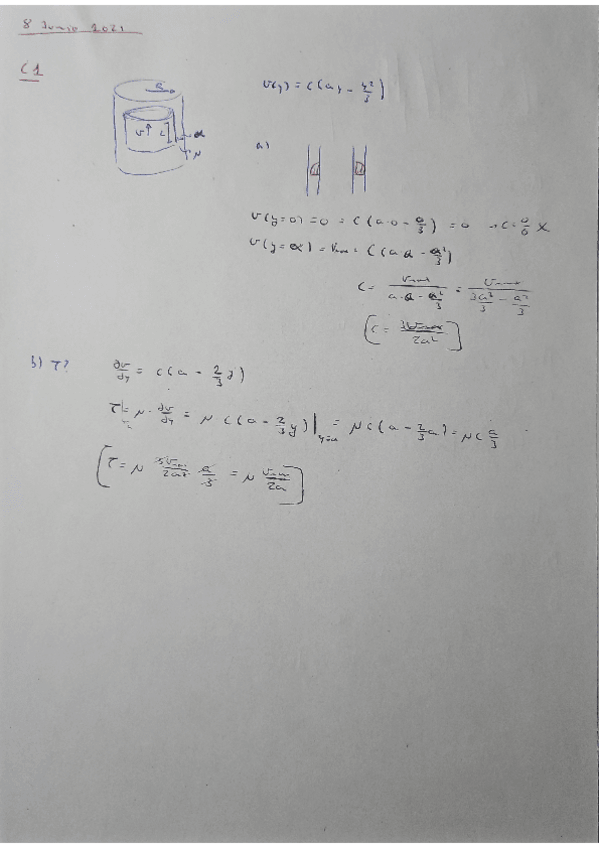 8 Junio 2021
C1
R
v L a
μ
v(y) = C(ay - y²/3)
a)
v(y=0) = 0 = C(a·0 - 0/3) = 0 → C = 0/0 X
v(y=a) = vmax = C(a·a - a²/3)
C = vmax/(a·a - a²/3) = vmax/(3a²/3 - a²/3)
[C = 3vmax/2a²]
b) τ? ∂v/∂y = C(a - 2/3 y)
τ| = μ · ∂v/∂y = μ C(a - 2/3 y)|y=a = μC(a - 2/3 a) = μC a/3
[τ = μ 3vmax/2a² a/3 = μ vmax/2a]